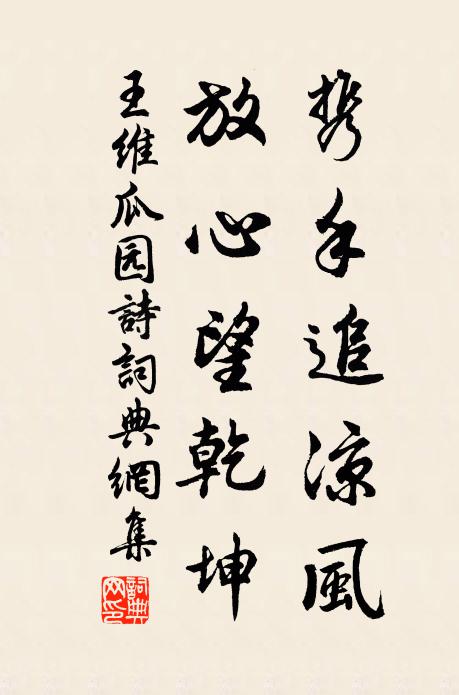 携手追涼風
放心望乾坤
王維瓜园詩詞典網集
詞典网印